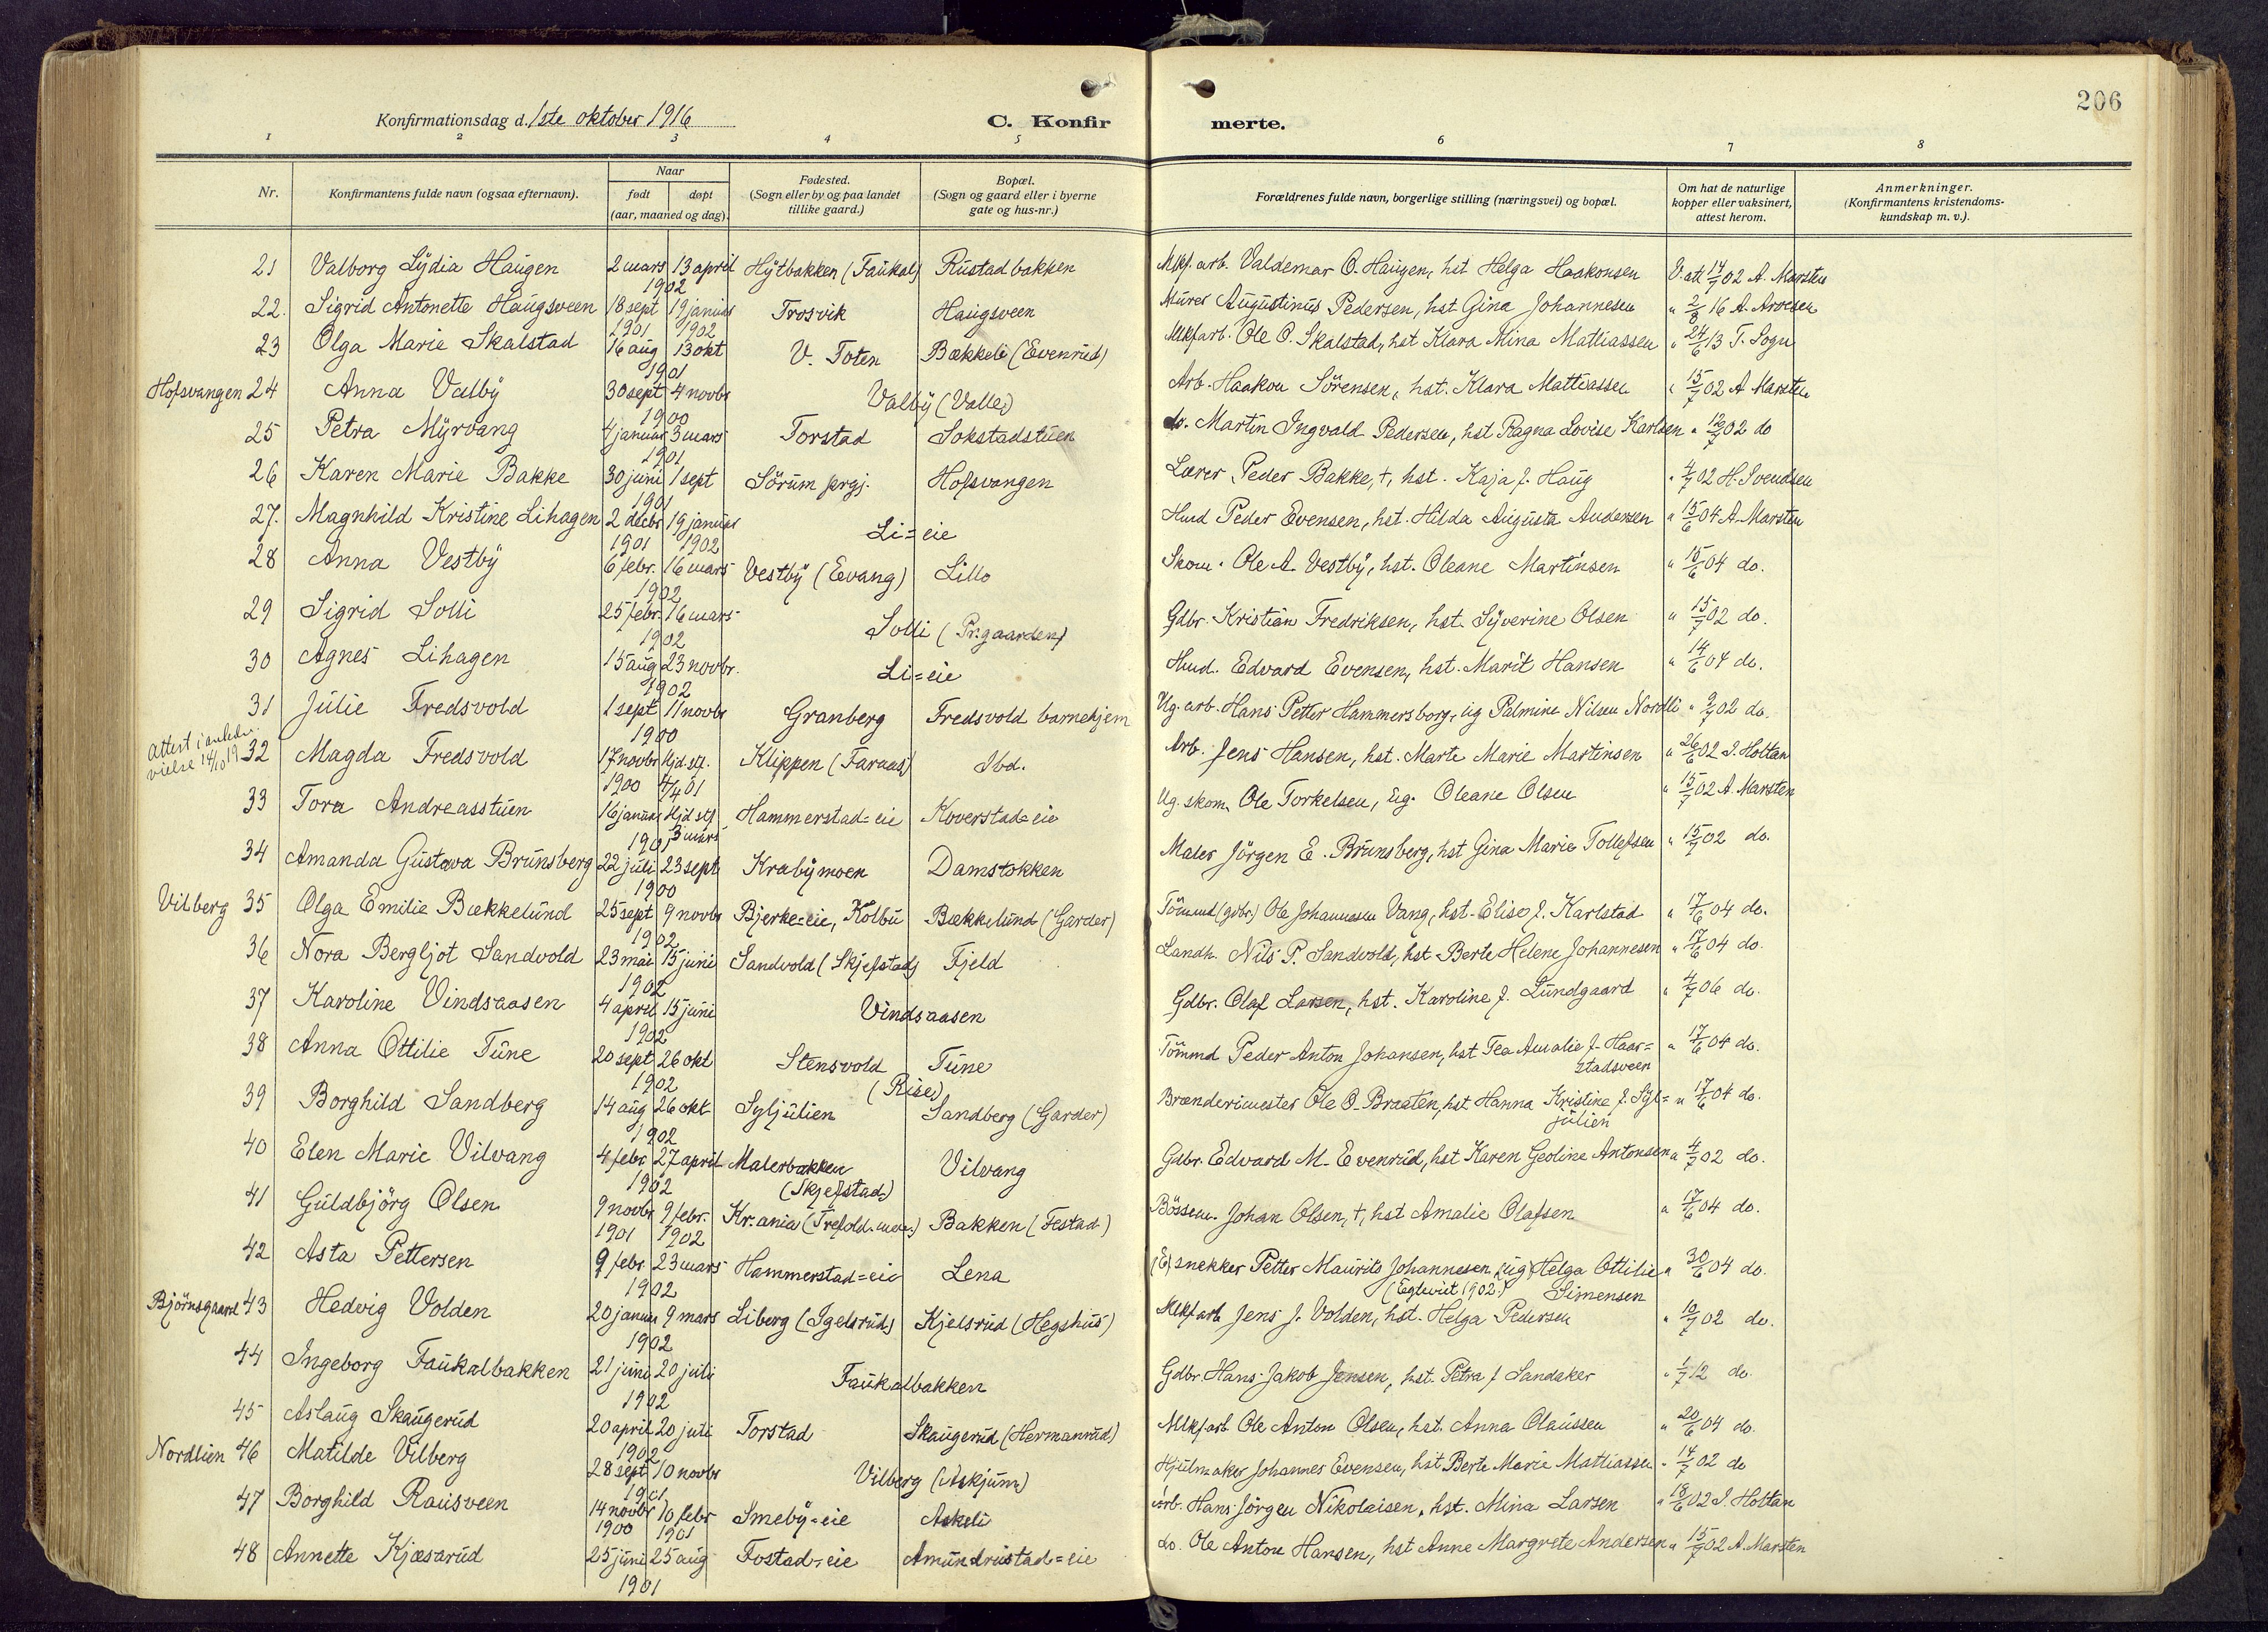 206
Konfirmationsdag d. 1ste oktober 1916
C. Konfir merte.
1 2 3 4 5 6 7 8
Nr. Konfirmantens fulde navn (ogsaa efternavn). Naar født døpt (aar, maaned og dag). Fødested. (Sogn eller by og paa landet tillike gaard.) Bopæl. (Sogn og gaard eller i byerne gate og hus-nr.) Forældrenes fulde navn, borgerlige stilling (næringsvei) og bopæl. Om hat de naturlige kopper eller vaksinert, attest herom. Anmerkninger. (Konfirmantens kristendoms-kundskap m. v.).
21 Valborg Lydia Haugen 2 mars 13 april 1902 Hytbakken (Faukal) Rustadbakken Mkf. arb. Valdemar O. Haugen, hst Helga Haakonsen V. att 14/7 02 A. Marsten
22. Sigrid Antonette Haugsveen 18 sept 1901 19 januar 1902 Trosvik Haugsveen Murer Augustinus Pedersen, hst Gina Johannesen " 2/8 16 A. Arnesen
23 Olga Marie Skalstad 16 aug 13 okt 1901 V. Toten Bækkeli (Evenrud) Mkf arb. Ole O. Skalstad, hst Klara Mina Mathiassen " 24/6 13 T. Sogn
Hofsvangen 24 Anna Valby 30 sept 4 novbr 1900 Valby (Valle) Arb. Haakon Sörensen, hst. Klara Mattiassen " 15/7 02 A Marsten
25 Petra Myrvang 4 januar 3 mars 1901 Torstad Sokstadstuen do. Martin Ingvald Pedersen, hst Ragna Lovise Karlsen " 12/7 02 do
26 Karen Marie Bakke 30 juni 1 sept 1901 Sörum prgj. Hofsvangen Lærer Peder Bakke, †, hst. Kaja f. Haug " 4/7 02 H. Svendsen
27. Magnhild Kristine Lihagen 2 decbr 1901 19 januar 1902 Li=eie Hmd Peder Evensen, hst. Hilda Augusta Andersen " 15/6 04 A. Marsten
28 Anna Vestby 6 febr. 16 mars 1902 Vestby (Evang) Lillo Skom. Ole A. Vestby, hst. Oleane Martinsen " 15/6 04 do.
29 Sigrid Solli 25 febr. 16 mars 1902 Solli (Pr.gaarden) Gdbr. Kristian Fredriksen, hst. Syverine Olsen " 15/7 02 do.
30 Agnes Lihagen 15 aug 23 novbr. 1902 Li=eie Hmd. Edvard Evensen, hst. Marit Hansen " 14/6 04 do.
31 Julie Fredsvold 1 sept 11 novbr 1900 Granberg Fredsvold barnehjem Ug. arb. Hans Petter Hammersborg, ug Palmine Nilsen Nordli " 9/7 02 do.
Attest i anledn. vielse 14/10 19 32 Magda Fredsvold 17 novbr 1900 Hjd. stf. 4/4 01 Klippen (Faraas) Ibd. Arb. Jens Hansen, hst. Marte Marie Martinsen " 26/6 02 I. Holtan
33 Tora Andreasstuen 16 januar Hjd stf 3 mars 1901 Hammerstad=eie Koverstad=eie Ug. skom. Ole Torkelsen, ug. Oleane Olsen " 15/7 02 A. Marsten
34 Amanda Gustava Brunsberg 22 juli 23 sept 1900 Krabymoen Damstokken Maler Jörgen E. Brunsberg, hst Gina Marie Tollefsen " 15/7 02 do.
Vilberg 35 Olga Emilie Bækkelund 25 sept 9 novbr 1902 Bjerke=eie, Kolbu Bækkelund (Garder) Tömmd (gdbr.) Ole Johannesen Vang, hst. Elise f. Karlstad " 17/6 04 do.
36 Nora Bergljot Sandvold 23 mai 15 juni 1902 Sandvold (Skjefstad) Fjeld Landh. Nils P. Sandvold, hst Berte Helene Johannesen " 17/6 04 do.
37 Karoline Vindsaasen 4 april 15 juni 1902 Vindsaasen Gdbr. Olaf Larsen, hst. Karoline f. Lundgaard " 4/7 06 do.
38 Anna Ottilie Tune 20 sept 26 okt 1902 Stensvold Tune (Rise) Tömmd Peder Anton Johansen, hst Tea Amalie f. Haar=stadsveen " 17/6 04 do.
39 Borghild Sandberg 14 aug 26 okt 1902 Syljulien Sandberg (Garder) Brænderimester Ole O. Braaten, hst Hanna Kristine f. Syl=julien " 17/6 04 do.
40 Elen Marie Vilvang 4 febr 27 april 1902 Malerbakken (Skjefstad) Vilvang Gdbr. Edvard M. Evenrud, hst Karen Geoline Antonsen " 4/7 02 do.
41 Guldbjörg Olsen 9 novbr 1901 9 febr. 1902 Kr.ania (Trefold. men.) Bakken (Festad) Bössem. Johan Olsen, †, hst Amalie Olafsen " 17/6 04 do.
42 Asta Pettersen 9 febr 23 mars 1902 Hammerstad=eie Lena (E) snekker Petter Maurits Johannesen (ug) Helga Ottilie Simensen (Egteviet 1902) " 30/6 04 do.
Björnsgaard 43 Hedvig Volden 20 januar 9 mars 1902 Liberg (Igelsrud) Kjelsrud (Hegshus) Mkf arb Jens J. Volden, hst. Helga Pedersen " 10/7 02 do.
44 Ingeborg Faukalbakken 21 juni 20 juli 1902 Faukalbakken Gdbr. Hans Jakob Jensen, hst. Petra f Sandaker " 1/7 12 do.
45 Aslaug Skaugerud 20 april 20 juli 1902 Torstad Skaugerud (Hermanrud) Mkf arb. Ole Anton Olsen, hst. Anna Olaussen " 20/6 04 do.
Nordlien 46 Matilde Vilberg 28 sept 10 novbr 1901 Vilberg (Askjum) Hjulmaker Johannes Evensen, hst Berte Marie Mattiassen " 14/7 02 do
47 Borghild Rausveen 14 novbr 1900 10 febr 1901 Smeby=eie Askeli Arb. Hans Jörgen Nikolaisen, hst. Mina Larsen " 18/6 02 I. Holtan
48 Annette Kjæsarud 25 juni 25 aug 1901 Fostad=eie Amundrustad=eie do. Ole Anton Hansen, hst Anne Margrete Andersen " 15/7 02 A. Marsten